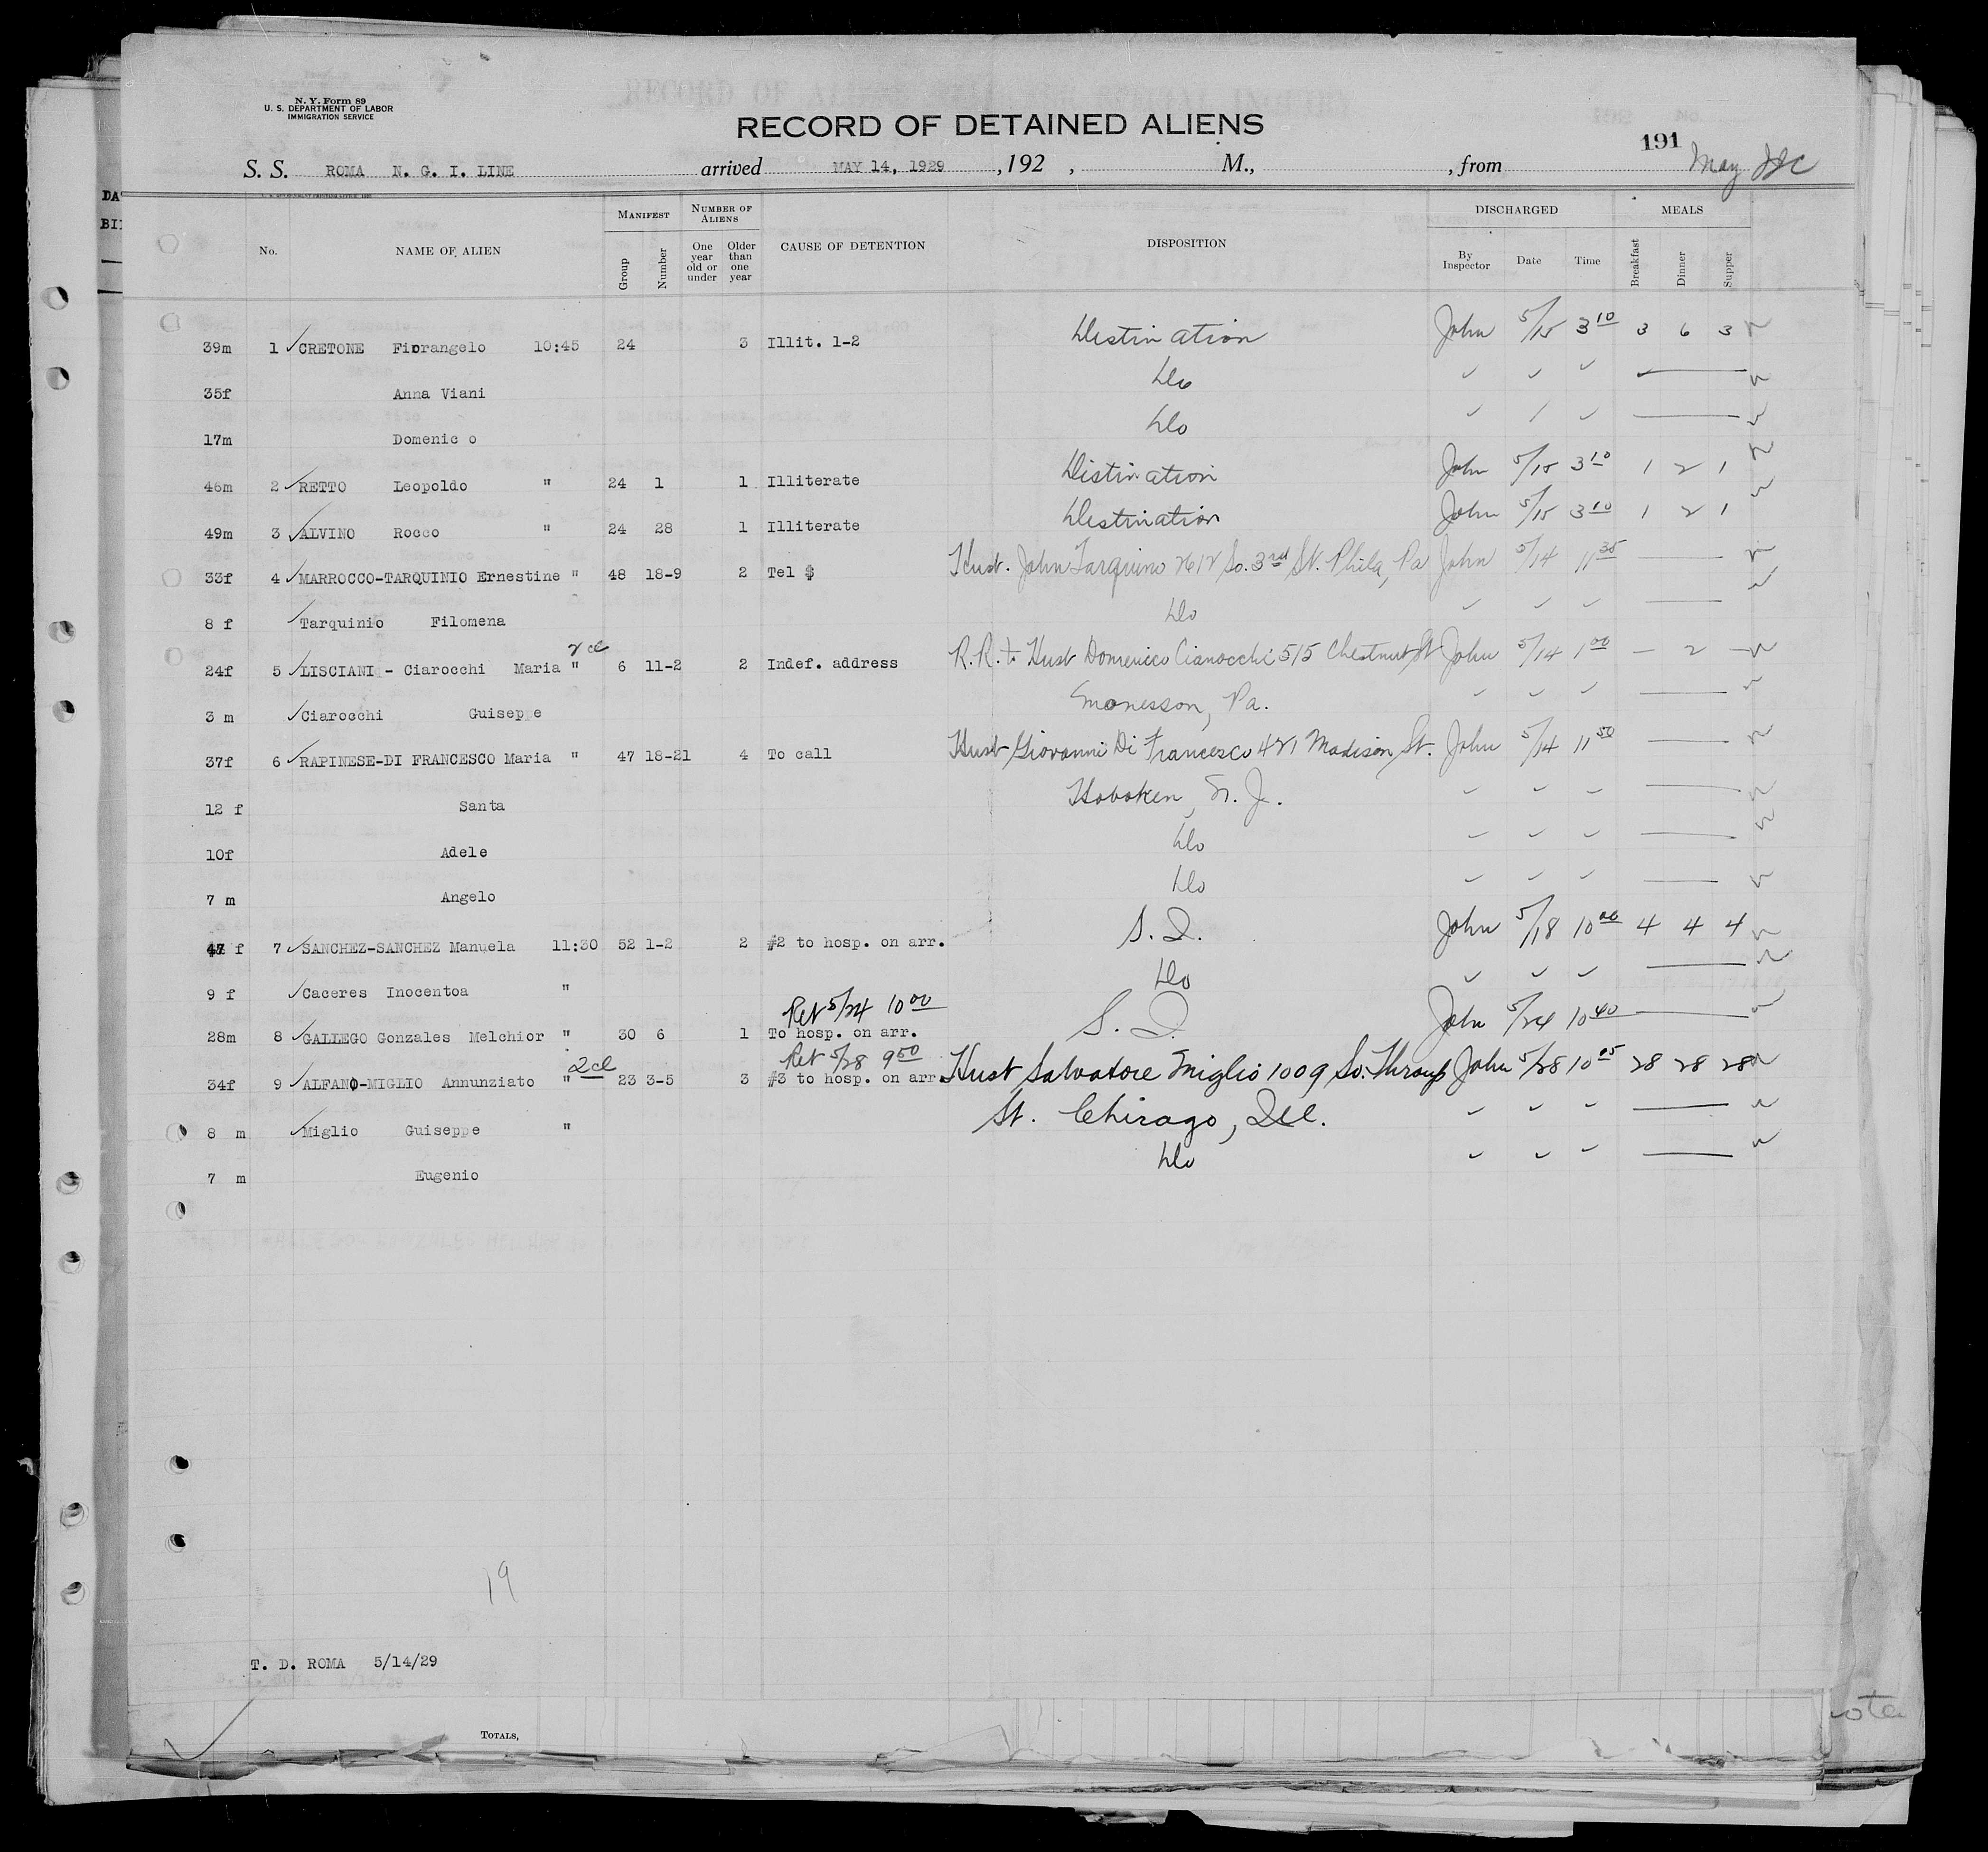 N. Y. Form 89
U. S. DEPARTMENT OF LABOR
IMMIGRATION SERVICE
RECORD OF DETAINED ALIENS
191
S. S. ROMA N. G. I. LINE arrived MAY 14, 1929 , 192 , M., , from May
DA
BI
No. NAME OF ALIEN MANIFEST Group Number NUMBER OF ALIENS One year old or under Older than one year CAUSE OF DETENTION DISPOSITION DISCHARGED By Inspector Date Time MEALS Breakfast Dinner Supper
39m 1 ✓CRETONE Fiorangelo 10:45 24 3 Illit. 1-2 Destination John 5/15 3 10 3 6 3
35f Anna Viani Do ✓ ✓ ✓ —
17m Domenic o Do ✓ / ✓ —
46m 2 ✓RETTO Leopoldo " 24 1 1 Illiterate Distination John 5/15 3 10 1 2 1
49m 3 ✓ALVINO Rocco " 24 28 1 Illiterate Destination John 5/15 3 10 1 2 1
33f 4 ✓MARROCCO-TARQUINIO Ernestine " 48 18-9 2 Tel $ Hust. John Tarquino 2612 So. 3rd St. Phila, Pa John 5/14 11 35 —
8 f ✓Tarquinio Filomena Do ✓ ✓ ✓ —
24f 5 ✓LISCIANI - Ciarocchi Maria " 2 cl 6 11-2 2 Indef. address R.R. to Hust Domenico Cianocchi 515 Chestnut St John 5/14 1 00 — 2 —
3 m ✓Ciarocchi Guiseppe Monesson, Pa. ✓ ✓ ✓ —
37f 6 ✓RAPINESE-DI FRANCESCO Maria " 47 18-21 4 To call Hust Giovanni Di Francesco 421 Madison St. John 5/14 11 50 —
12 f Santa Hoboken, N. J. ✓ ✓ ✓ —
10f Adele Do ✓ ✓ ✓ —
7 m Angelo Do ✓ ✓ ✓ —
47 f 7 ✓SANCHEZ-SANCHEZ Manuela 11:30 52 1-2 2 #2 to hosp. on arr. S. I. John 5/18 10 00 4 4 4
9 f ✓Caceres Inocentoa " Do ✓ ✓ ✓ —
Ret 5/24 10 00
28m 8 ✓GALLEGO Gonzales Melchior " 30 6 1 To hosp. on arr. S. I. John 5/24 10 40 —
Ret 5/28 9 50
34f 9 ✓ALFANO-MIGLIO Annunziato " 2cl 23 3-5 3 #3 to hosp. on arr. Hust Salvatore Miglio 1009 So. Throup John 5/28 10 05 28 28 28
8 m ✓Miglio Guiseppe " St. Chicago, Ill. ✓ ✓ ✓ —
7 m Eugenio Do ✓ ✓ ✓ —
19
T. D. ROMA 5/14/29
TOTALS,